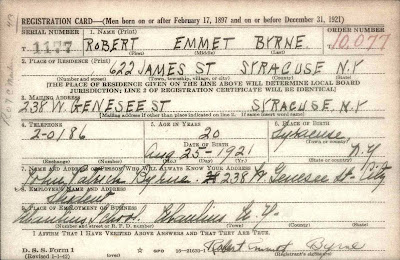 REGISTRATION CARD—(Men born on or after February 17, 1897 and on or before December 31, 1921)
SERIAL NUMBER 1. NAME (Print) ORDER NUMBER
1177 ROBERT EMMET BYRNE 10,077
(First) (Middle) (Last)
2. PLACE OF RESIDENCE (Print)
622 JAMES ST SYRACUSE N.Y
(Number and street) (Town, township, village, or city) (County) (State)
[THE PLACE OF RESIDENCE GIVEN ON THE LINE ABOVE WILL DETERMINE LOCAL BOARD
JURISDICTION; LINE 2 OF REGISTRATION CERTIFICATE WILL BE IDENTICAL]
3. MAILING ADDRESS
238 W. GENESEE ST SYRACUSE, N.Y.
[Mailing address if other than place indicated on line 2. If same insert word same]
4. TELEPHONE 5. AGE IN YEARS 6. PLACE OF BIRTH
2-0186 20 Syracuse
DATE OF BIRTH (Town or county)
Aug 25 - 1921 N.Y.
(Exchange) (Number) (Mo.) (Day) (Yr.) (State or country)
7. NAME AND ADDRESS OF PERSON WHO WILL ALWAYS KNOW YOUR ADDRESS
Byrne 238 W Genesee St
8. EMPLOYER'S NAME AND ADDRESS
Student
9. PLACE OF EMPLOYMENT OR BUSINESS
Manlius School Manlius N.Y.
(Number and street or R. F. D. number) (Town) (County) (State)
I AFFIRM THAT I HAVE VERIFIED ABOVE ANSWERS AND THAT THEY ARE TRUE.
D. S. S. Form 1
(Revised 1-1-42) (over) GPO 16—21631-1 Robert Emmet Byrne
(Registrant's signature)